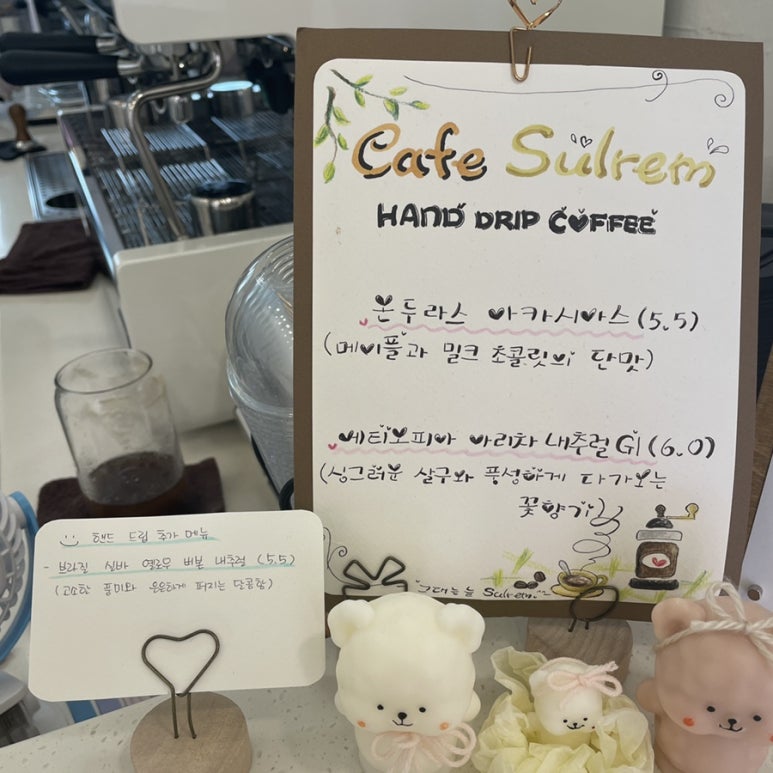 Cafe Sulrem
HAND DRIP COFFEE
온두라스 마카시아스 (5.5)
(메이플과 밀크 초콜릿의 단맛)
에티오피아 아리차 내추럴 G1 (6.0)
(싱그러운 살구와 풍성하게 다가오는
꽃향기)
그대는 늘 Sulrem
핸드 드립 추가 메뉴
- 브라질 실바 옐로우 버본 내추럴 (5.5)
(고소한 풍미와 은은하게 퍼지는 단콤함)